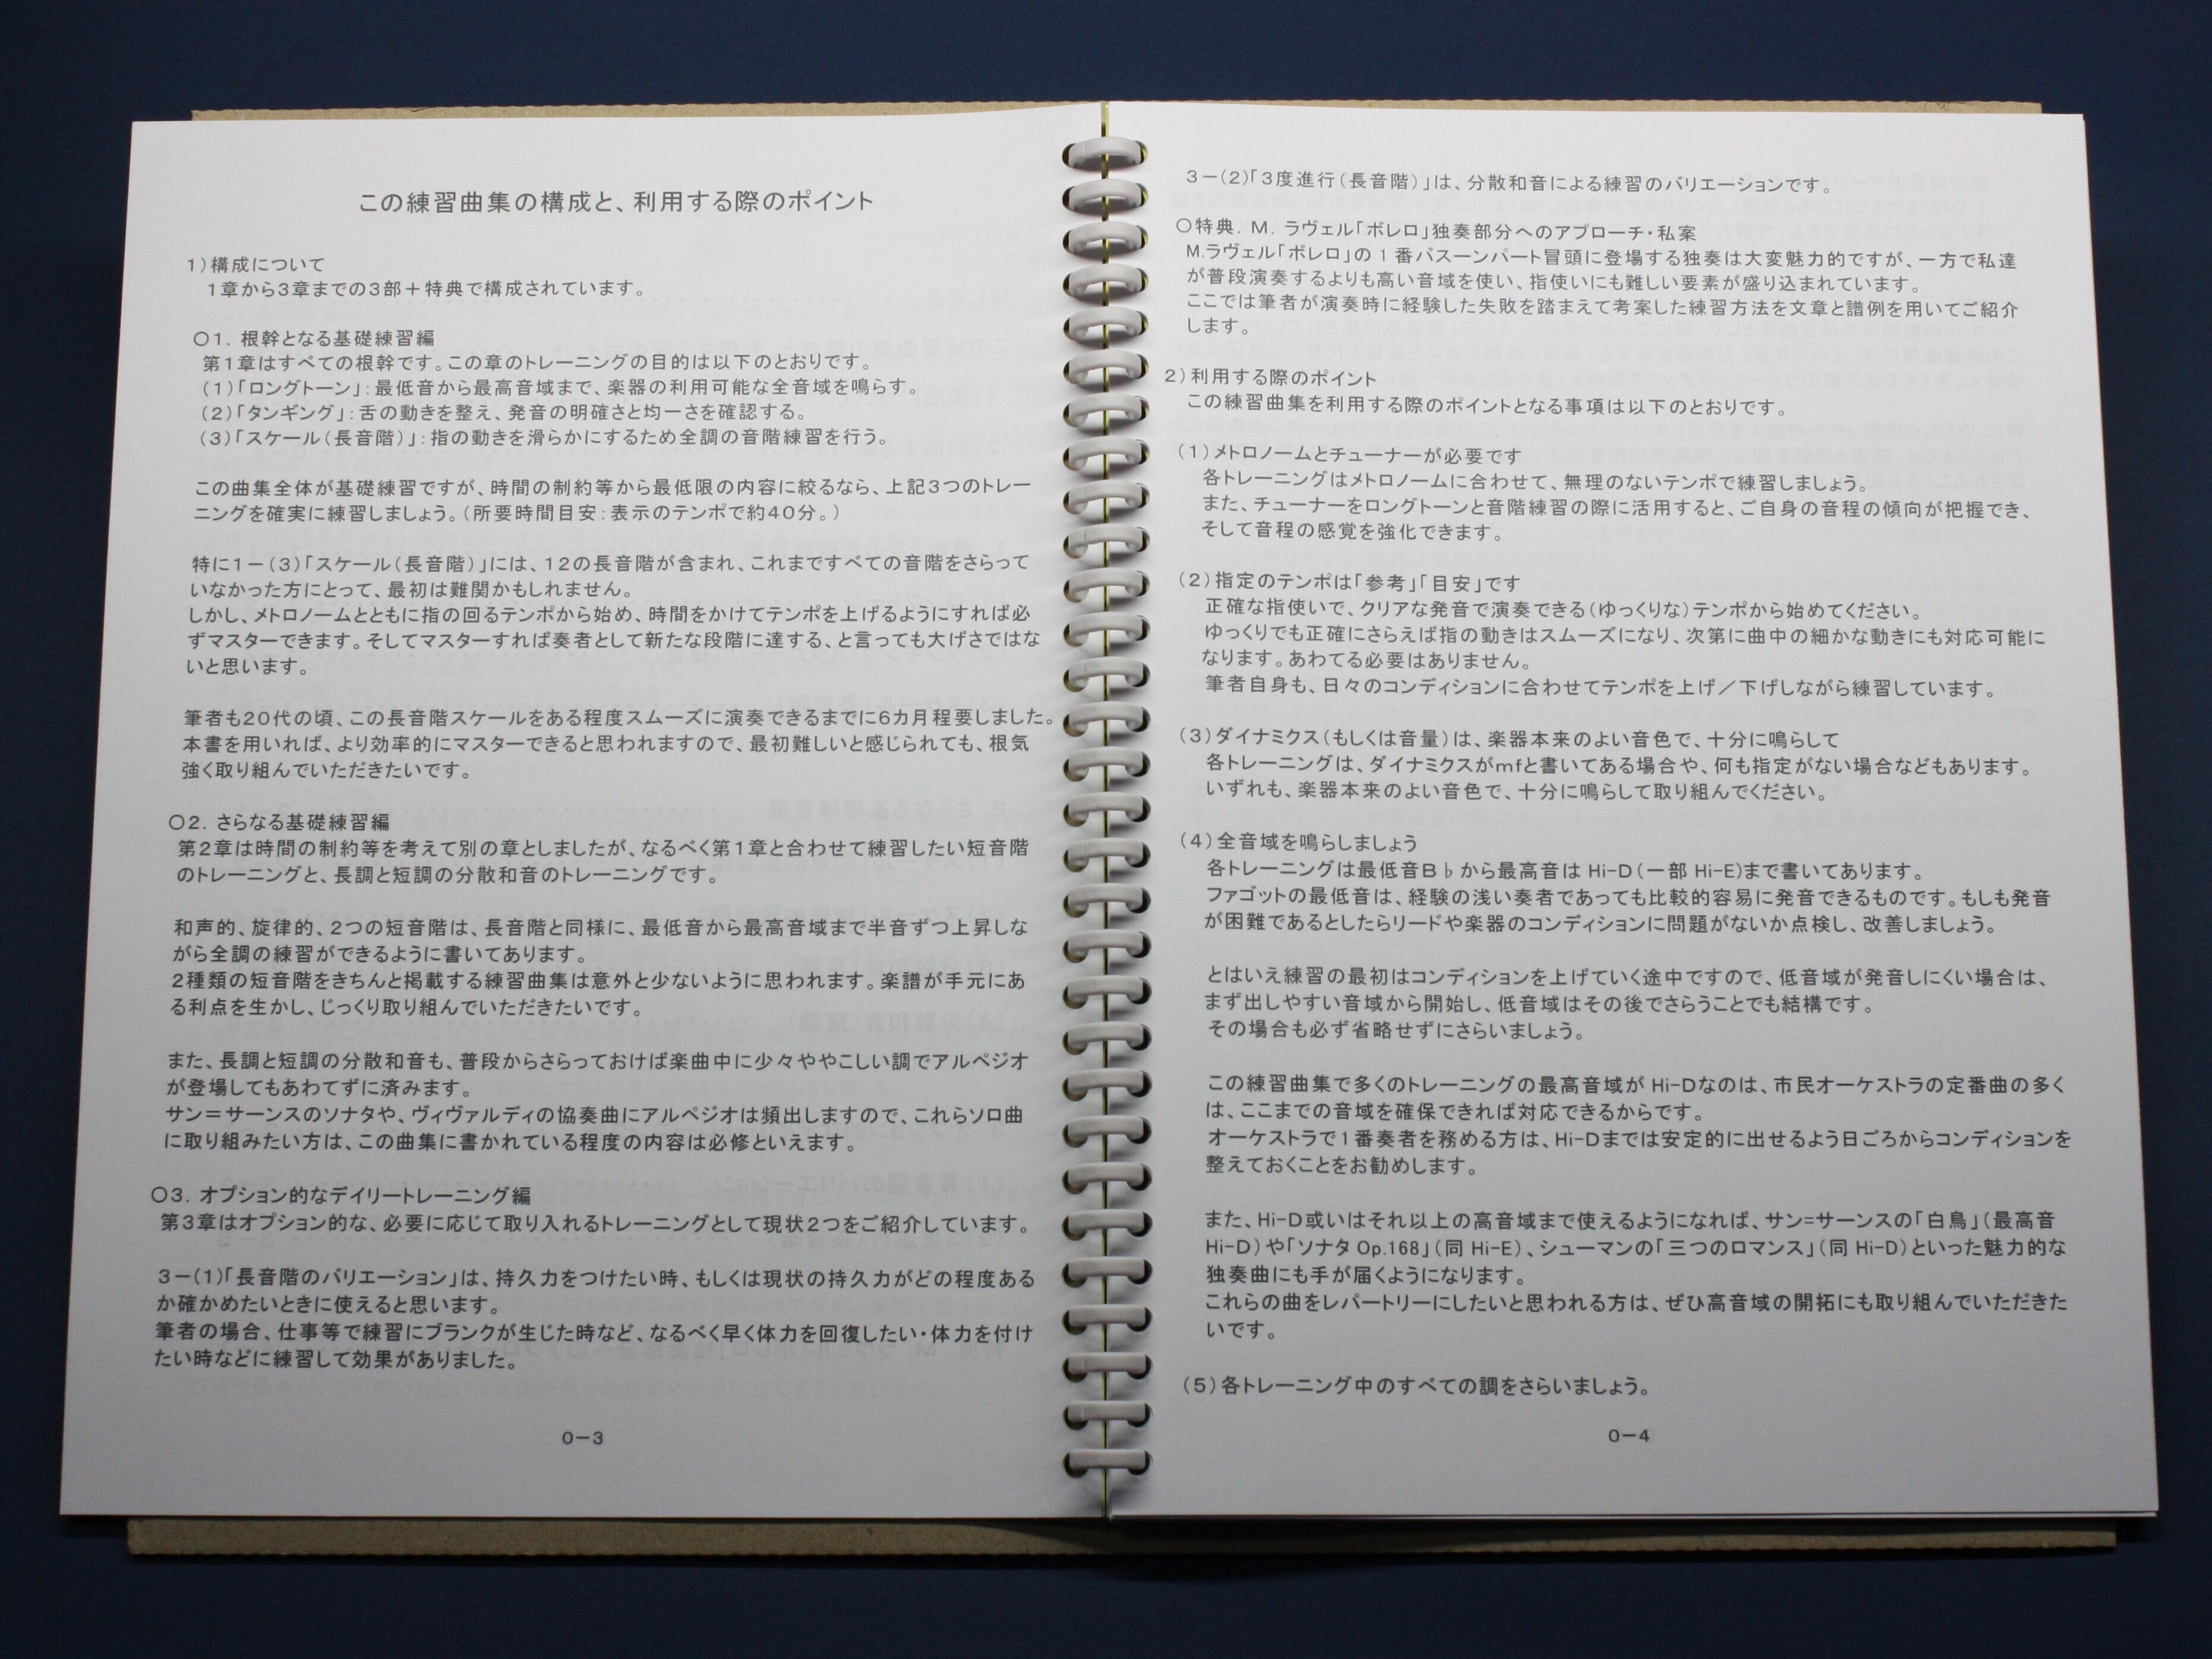 この練習曲集の構成と、利用する際のポイント
1)構成について
1章から3章までの3部＋特典で構成されています。
○1. 根幹となる基礎練習編
第1章はすべての根幹です。この章のトレーニングの目的は以下のとおりです。
(1)「ロングトーン」：最低音から最高音域まで、楽器の利用可能な全音域を鳴らす。
(2)「タンギング」：舌の動きを整え、発音の明確さと均一さを確認する。
(3)「スケール(長音階)」：指の動きを滑らかにするため全調の音階練習を行う。
この曲集全体が基礎練習ですが、時間の制約等から最低限の内容に絞るなら、上記3つのトレー
ニングを確実に練習しましょう。(所要時間目安：表示のテンポで約40分。)
特に1－(3)「スケール(長音階)」には、12の長音階が含まれ、これまですべての音階をさらって
いなかった方にとって、最初は難関かもしれません。
しかし、メトロノームとともに指の回るテンポから始め、時間をかけてテンポを上げるようにすれば必
ずマスターできます。そしてマスターすれば奏者として新たな段階に達する、と言っても大げさではな
いと思います。
筆者も20代の頃、この長音階スケールをある程度スムーズに演奏できるまでに6カ月程要しました。
本書を用いれば、より効率的にマスターできると思われますので、最初難しいと感じられても、根気
強く取り組んでいただきたいです。
○2. さらなる基礎練習編
第2章は時間の制約等を考えて別の章としましたが、なるべく第1章と合わせて練習したい短音階
のトレーニングと、長調と短調の分散和音のトレーニングです。
和声的、旋律的、2つの短音階は、長音階と同様に、最低音から最高音域まで半音ずつ上昇しな
がら全調の練習ができるように書いてあります。
2種類の短音階をきちんと掲載する練習曲集は意外と少ないように思われます。楽譜が手元にあ
る利点を生かし、じっくり取り組んでいただきたいです。
また、長調と短調の分散和音も、普段からさらっておけば楽曲中に少々ややこしい調でアルペジオ
が登場してもあわてずに済みます。
サン＝サーンスのソナタや、ヴィヴァルディの協奏曲にアルペジオは頻出しますので、これらソロ曲
に取り組みたい方は、この曲集に書かれている程度の内容は必修といえます。
○3. オプション的なデイリートレーニング編
第3章はオプション的な、必要に応じて取り入れるトレーニングとして現状2つをご紹介しています。
3－(1)「長音階のバリエーション」は、持久力をつけたい時、もしくは現状の持久力がどの程度ある
か確かめたいときに使えると思います。
筆者の場合、仕事等で練習にブランクが生じた時など、なるべく早く体力を回復したい・体力を付け
たい時などに練習して効果がありました。
0－3
3－(2)「3度進行(長音階)」は、分散和音による練習のバリエーションです。
○特典. M. ラヴェル「ボレロ」独奏部分へのアプローチ・私案
M.ラヴェル「ボレロ」の1番バスーンパート冒頭に登場する独奏は大変魅力的ですが、一方で私達
が普段演奏するよりも高い音域を使い、指使いにも難しい要素が盛り込まれています。
ここでは筆者が演奏時に経験した失敗を踏まえて考案した練習方法を文章と譜例を用いてご紹介
します。
2)利用する際のポイント
この練習曲集を利用する際のポイントとなる事項は以下のとおりです。
(1)メトロノームとチューナーが必要です
各トレーニングはメトロノームに合わせて、無理のないテンポで練習しましょう。
また、チューナーをロングトーンと音階練習の際に活用すると、ご自身の音程の傾向が把握でき、
そして音程の感覚を強化できます。
(2)指定のテンポは「参考」「目安」です
正確な指使いで、クリアな発音で演奏できる(ゆっくりな)テンポから始めてください。
ゆっくりでも正確にさらえば指の動きはスムーズになり、次第に曲中の細かな動きにも対応可能に
なります。あわてる必要はありません。
筆者自身も、日々のコンディションに合わせてテンポを上げ／下げしながら練習しています。
(3)ダイナミクス(もしくは音量)は、楽器本来のよい音色で、十分に鳴らして
各トレーニングは、ダイナミクスがmfと書いてある場合や、何も指定がない場合などもあります。
いずれも、楽器本来のよい音色で、十分に鳴らして取り組んでください。
(4)全音域を鳴らしましょう
各トレーニングは最低音B♭から最高音は Hi-D(一部 Hi-E)まで書いてあります。
ファゴットの最低音は、経験の浅い奏者であっても比較的容易に発音できるものです。もしも発音
が困難であるとしたらリードや楽器のコンディションに問題がないか点検し、改善しましょう。
とはいえ練習の最初はコンディションを上げていく途中ですので、低音域が発音しにくい場合は、
まず出しやすい音域から開始し、低音域はその後でさらうことでも結構です。
その場合も必ず省略せずにさらいましょう。
この練習曲集で多くのトレーニングの最高音域が Hi-Dなのは、市民オーケストラの定番曲の多く
は、ここまでの音域を確保できれば対応できるからです。
オーケストラで1番奏者を務める方は、Hi-Dまでは安定的に出せるよう日ごろからコンディションを
整えておくことをお勧めします。
また、Hi-D或いはそれ以上の高音域まで使えるようになれば、サン=サーンスの「白鳥」(最高音
Hi-D)や「ソナタ Op.168」(同 Hi-E)、シューマンの「三つのロマンス」(同 Hi-D)といった魅力的な
独奏曲にも手が届くようになります。
これらの曲をレパートリーにしたいと思われる方は、ぜひ高音域の開拓にも取り組んでいただきた
いです。
(5)各トレーニング中のすべての調をさらいましょう。
0－4